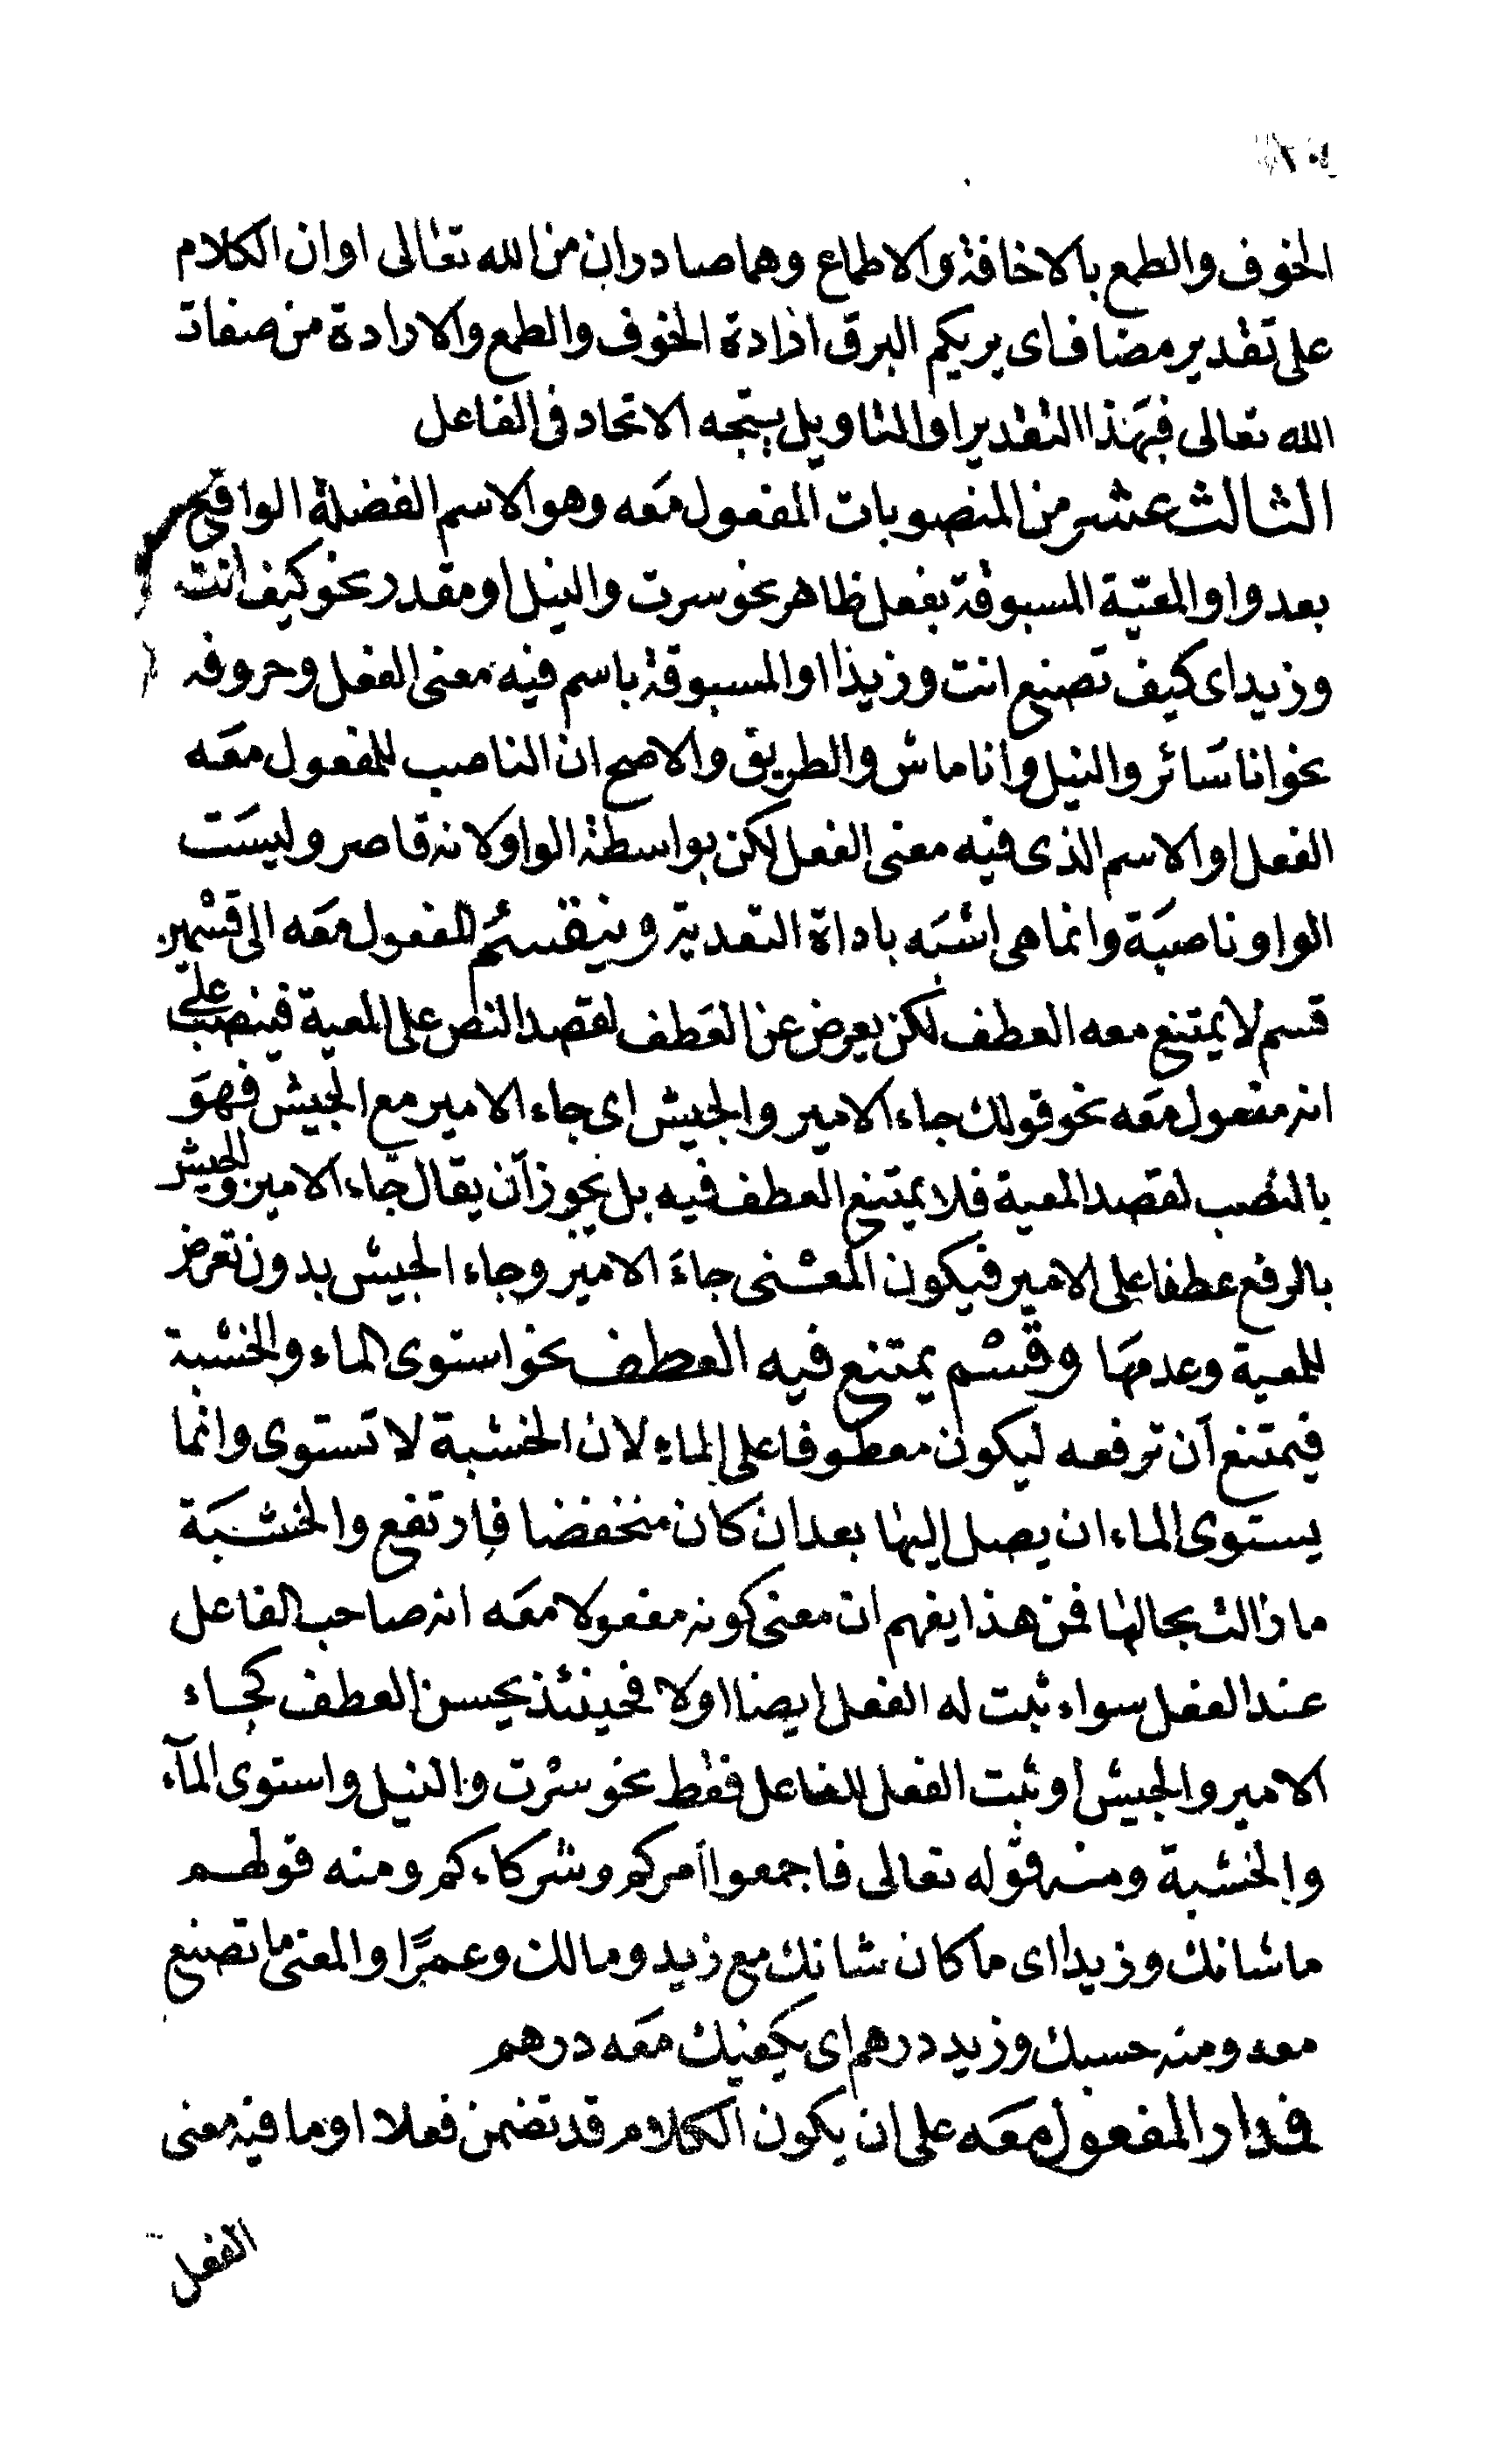 الخوف والطمع بالاخافة والاطماع وهما صادران من الله تعالى او ان الكلام
على تقدير مضاف اى يريكم البرق ارادة الخوف والطمع والارادة من صفات
الله تعالى فبهذا التقدير او التاويل يتجه الاتحاد فى الفاعل
الثالث عشر من المنصوبات المفعول معه وهو الاسم الفضلة الواقع
بعد واو المعيّة المسبوقة بفعل ظاهر نحو سرت والنيل او مقدر نحو كيف انت
وزيدا اى كيف تصنع انت وزيدا او المسبوقة باسم فيه معنى الفعل وحروفه
نحو انا سائر والنيل وانا ماش والطريق والاصح ان الناصب للمفعول معه
الفعل او الاسم الذى فيه معنى الفعل لكن بواسطة الواو لانه قاصر وليست
الواو ناصبة وانما هى اشبه باداة التعدية وينقسم المفعول معه الى قسمين
قسم لا يمتنع معه العطف لكن يعرض عن العطف لقصد النص على المعية فينصب على
انه مفعول معه نحو قولك جاء الامير والجيش اى جاء الامير مع الجيش فهو
بالنصب لقصد المعية فلا يمتنع العطف فيه بل يجوز أن يقال جاء الامير والجيش
بالرفع عطفا على الامير فيكون المعنى جاء الامير وجاء الجيش بدون تعرض
للمعية وعدمها وقسم يمتنع فيه العطف نحو استوى الماء والخشبة
فيمتنع أن ترفعه ليكون معطوفا على الماء لان الخشبة لا تستوى وانما
يستوى الماء ان يصل اليها بعد ان كان منخفضا فارتفع والخشبة
ما زالت بحالها فمن هذا يفهم ان معنى كونه مفعولا معه انه صاحب الفاعل
عند الفعل سواء ثبت له الفعل ايضا او لا فحينئذ يحسن العطف كجاء
الامير والجيش او ثبت الفعل للفاعل فقط نحو سرت والنيل واستوى المآء
والخشبة ومنه قوله تعالى فاجمعوا أمركم وشركاءكم ومنه قولهم
ما شانك وزيدا اى ما كان شانك مع زيد ومالك وعمرًا والمعنى ما تصنع
معه ومنه حسبك وزيد درهم اى يكفيك معه درهم
فمدار المفعول معه على ان يكون الكلام قد تضمن فعلا او ما فيه معنى
الفعل